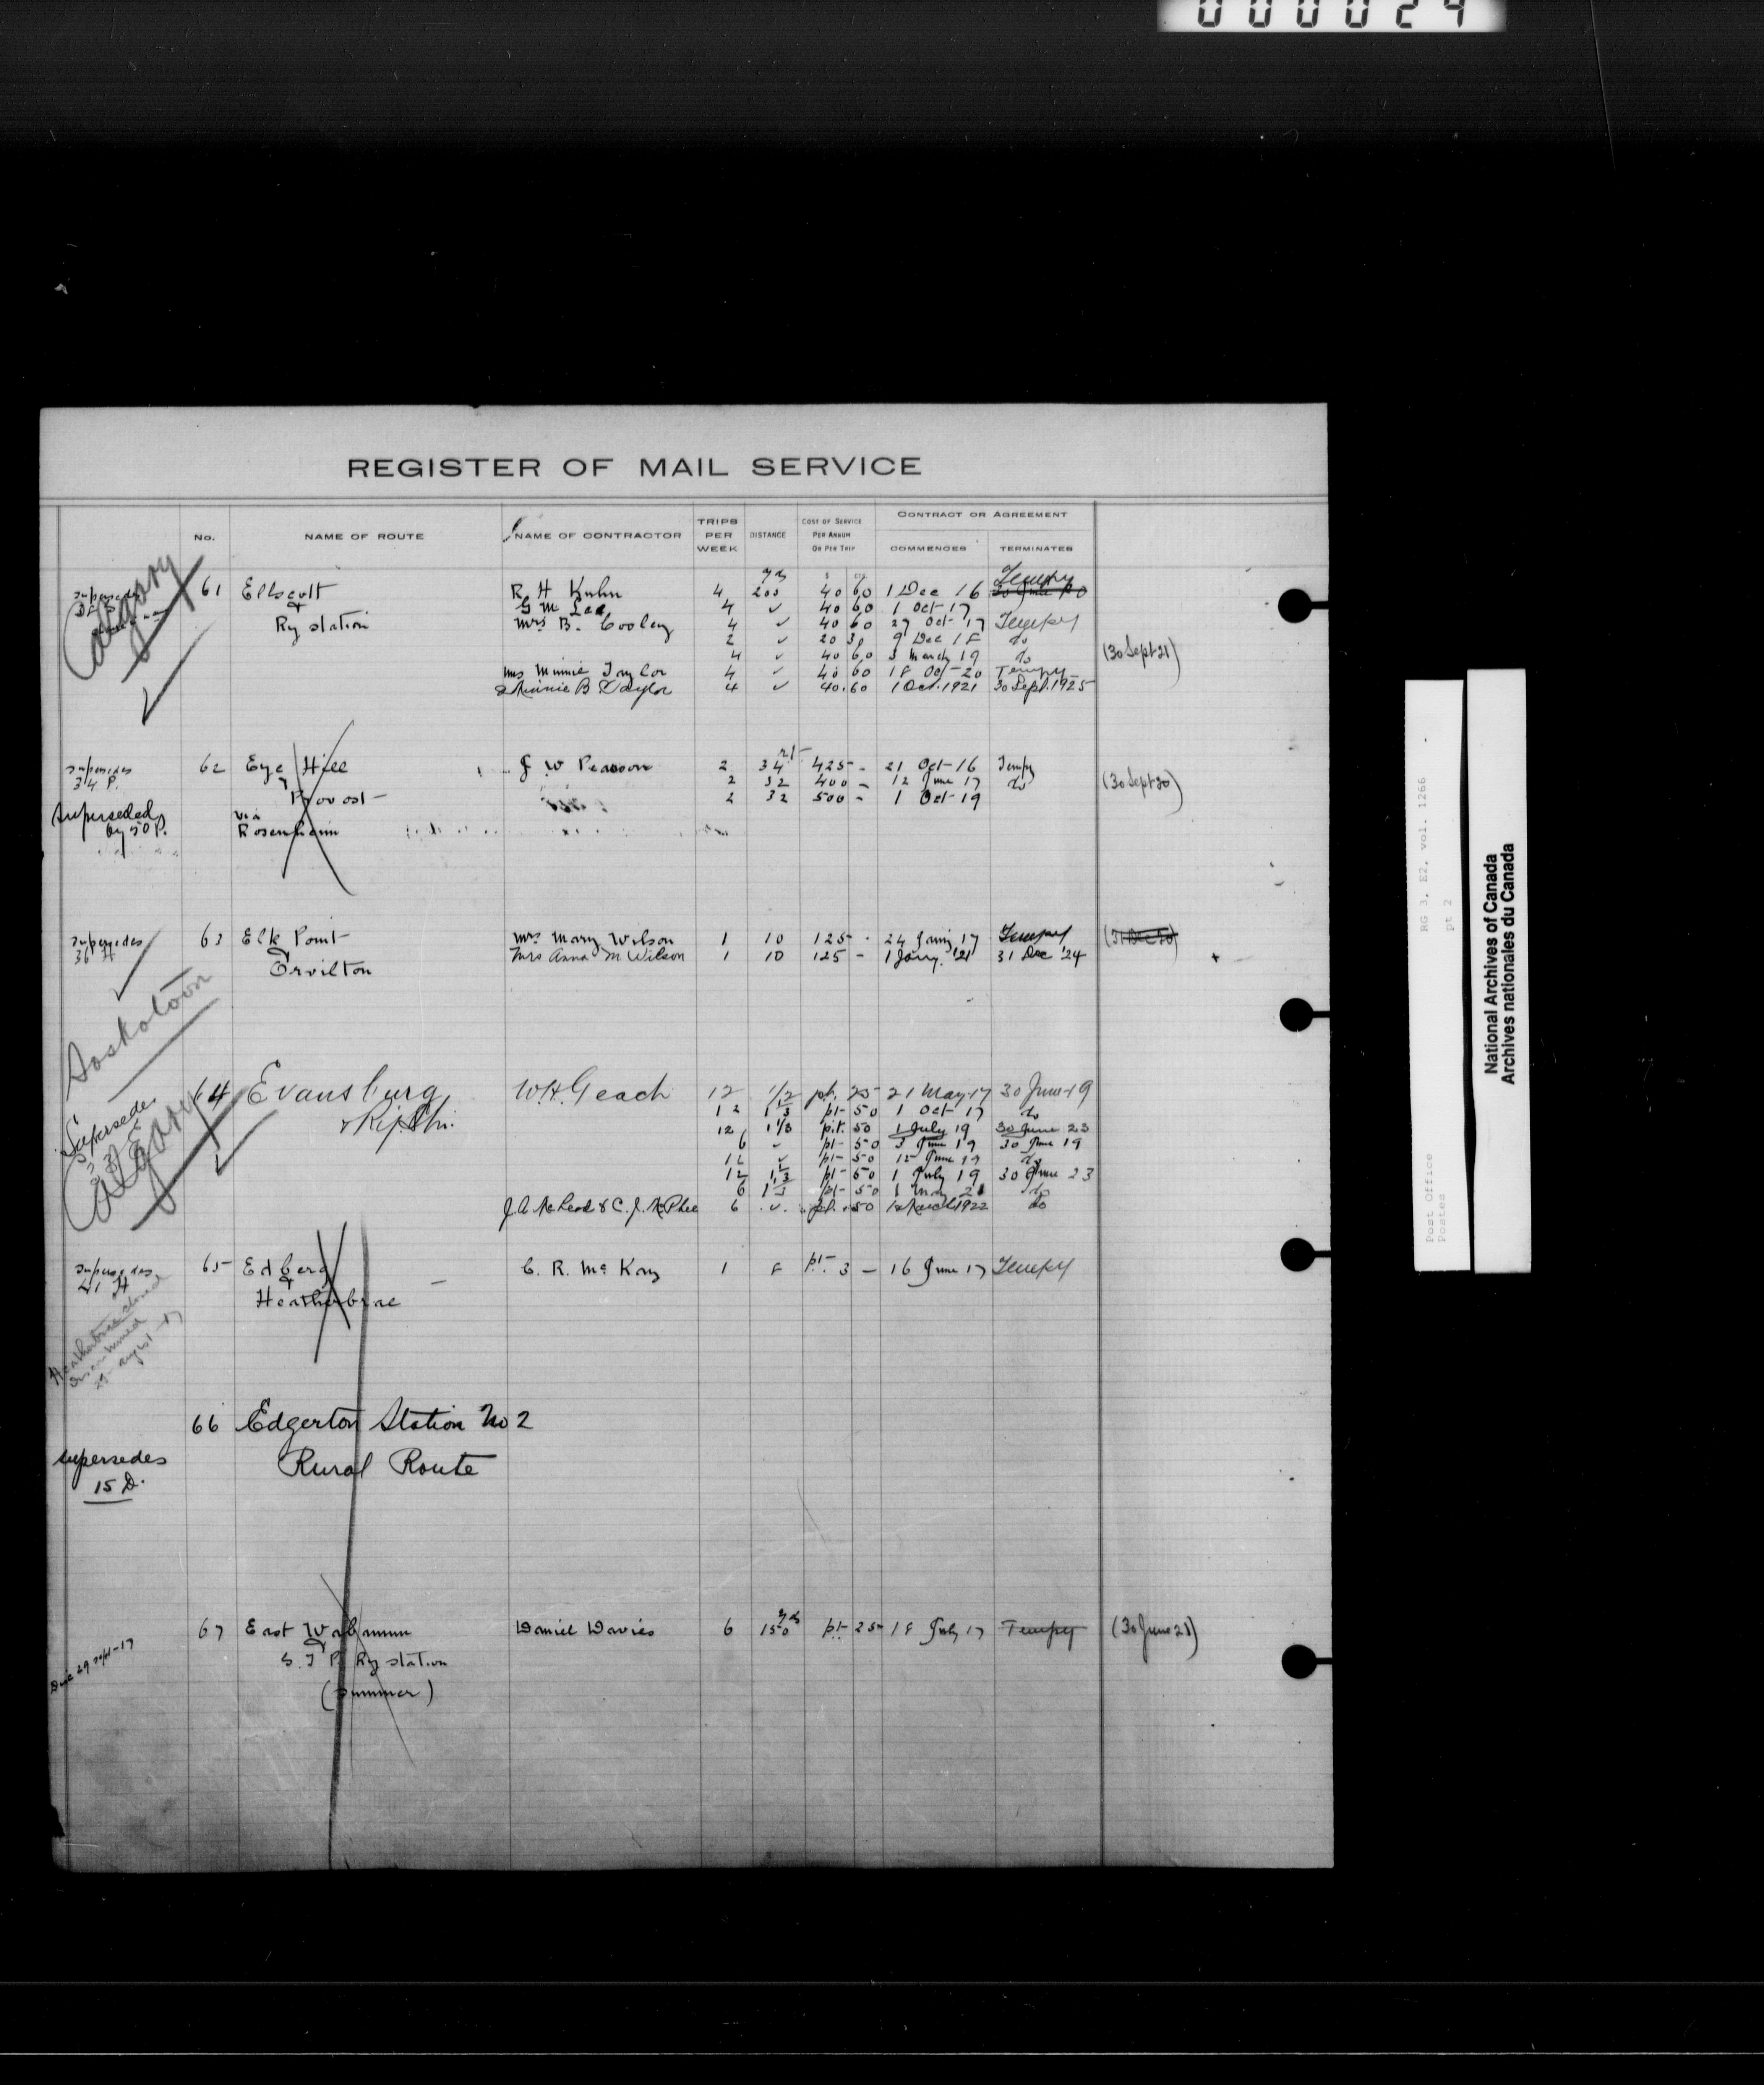 000024
REGISTER OF MAIL SERVICE
No. NAME OF ROUTE NAME OF CONTRACTOR TRIPS PER WEEK DISTANCE COST OF SERVICE PER ANNUM OR PER TRIP CONTRACT OR AGREEMENT COMMENCES TERMINATES
$ cts
Calgary
yds Tempy
supersedes 61 Ellscott R. H Kuhn 4 200 40 60 1 Dec 16
& G M Lee 4 ✓ 40 60 1 Oct 17
Ry station Mrs B. Cooley 4 ✓ 40 60 27 Oct 17 Tempy
2 ✓ 20 30 9 Dec 18 do
4 ✓ 40 60 3 March 19 do (30 Sept 21)
Mrs Minnie Taylor 4 ✓ 40 60 18 Oct 20 Tempy
Minnie B Taylor 4 ✓ 40.60 1 Oct. 1921 30 Sept. 1925
supersedes 62 Eye Hill J W Pearson 2 34 425 - 21 Oct 16 Tempy
34 P. & 2 32 400 - 12 June 17 do (30 Sept 20)
Provost 2 32 500 - 1 Oct 19
Superseded by 50 P.
via
Rosenheim
supersedes 63 Elk Point Mrs Mary Wilson 1 10 125 - 24 Jany 17 Tempy (31 Dec 20)
36 H & Mrs Anna M Wilson 1 10 125 - 1 Jany. '21 31 Dec '24
Orvilton
Saskatoon
64 Evansburg W.H. Geach 12 1/2 pt. 25 21 May 17 30 June 19
Supersedes & Rip. Stn. 12 1/3 pt 50 1 Oct 17 do
12 1/3 p.t. 50 1 July 19 30 June 23
6 ✓ pt 50 3 June 19 30 June 19
12 ✓ pt 50 15 June 19 do
12 1/3 pt 50 1 July 19 30 June 23
6 1/3 pt 50 1 May 21 do
J.A. McLeod & C. J. McPhee 6 ✓ pt. 50 1 March 1922 do
Calgary
supersedes 65 Edberg C. R. McKay 1 8 pt. 3 - 16 June 17 Tempy
21 H &
Heatherbrae
Heatherbrae closed
discontinued
25 Augst 17
66 Edgerton Station No 2
Rural Route
supersedes
15 D.
67 East Wabamun Daniel Davies 6 150 yds pt 25 18 July 17 Tempy (30 June 21)
&
G. T P. Ry station
(Summer)
Disc 29 Sept-17
RG 3, E2, vol. 1266
pt 2
Post Office
Postes
National Archives of Canada
Archives nationales du Canada